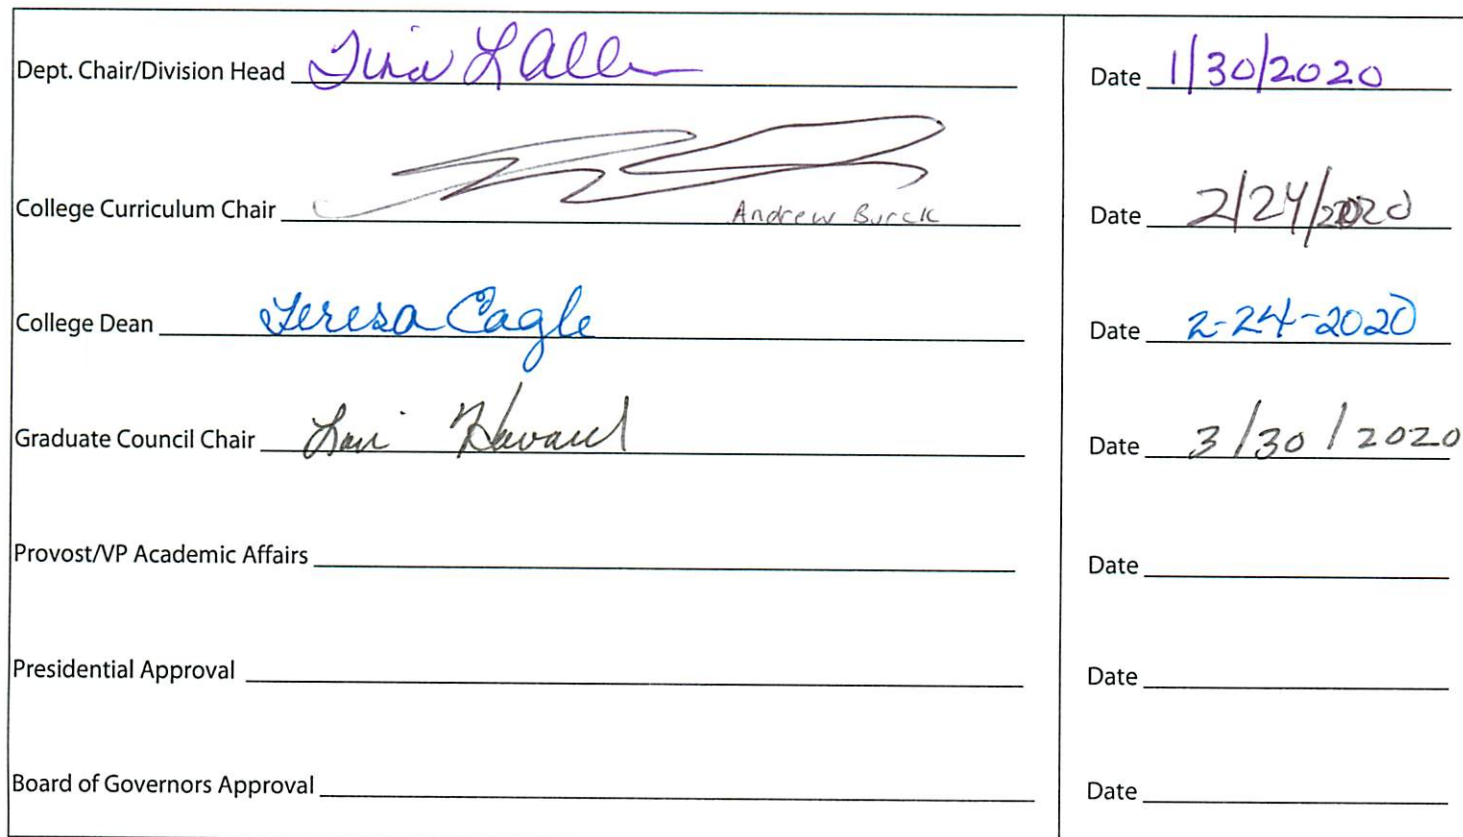 Dept. Chair/Division Head Tina L Allen Date 1/30/2020
College Curriculum Chair Andrew Burck Date 2/24/2020
College Dean Teresa Cagle Date 2-24-2020
Graduate Council Chair Lori Howard Date 3/30/2020
Provost/VP Academic Affairs Date
Presidential Approval Date
Board of Governors Approval Date